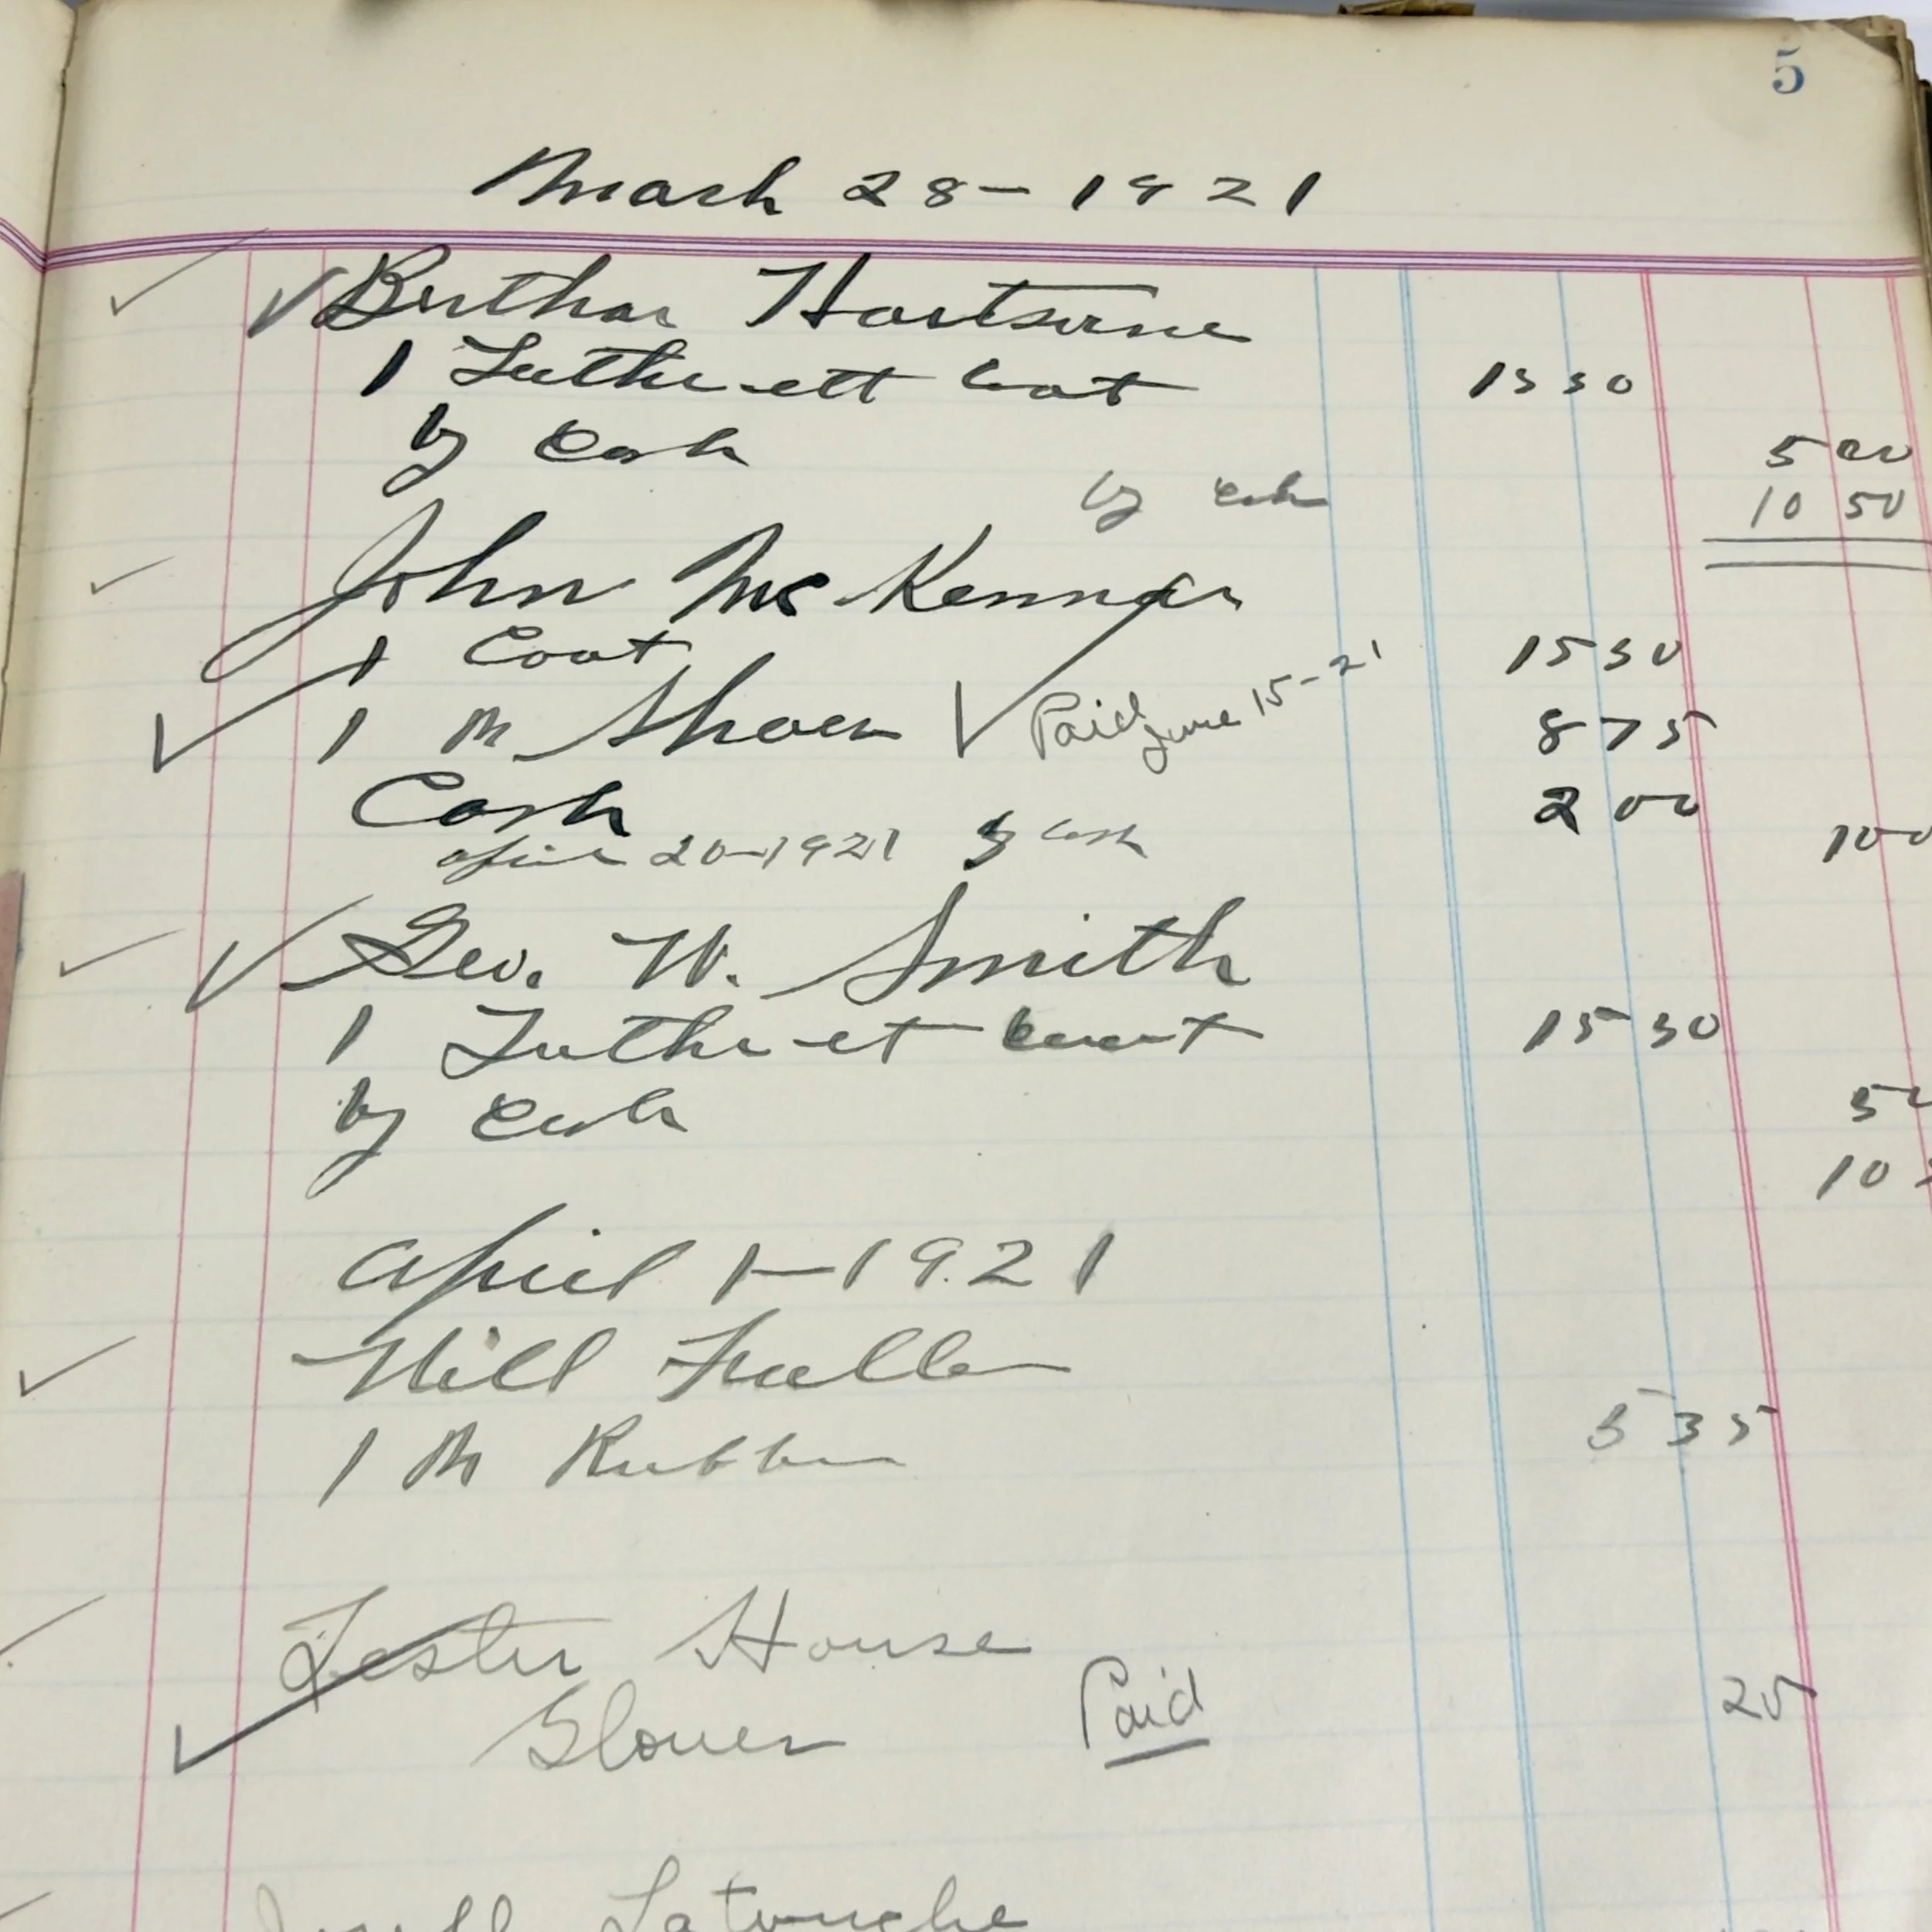 5
March 28-1921
Bertha
1 Leatherett Coat 15 50
by Cash 5 00
by Cash 10 50
John McKenna
1 Coat 15 50
1 Pr Shoes Paid June 15-21 8 75
Cash 2 00
April 20-1921 by Cash 10 0
Geo. W. Smith
1 Leatheret Coat 15 50
by Cash 5
10
April 1-1921
Will Fuller
1 Pr Rubbers 5 35
Lester House
Gloves Paid 25
Latouche